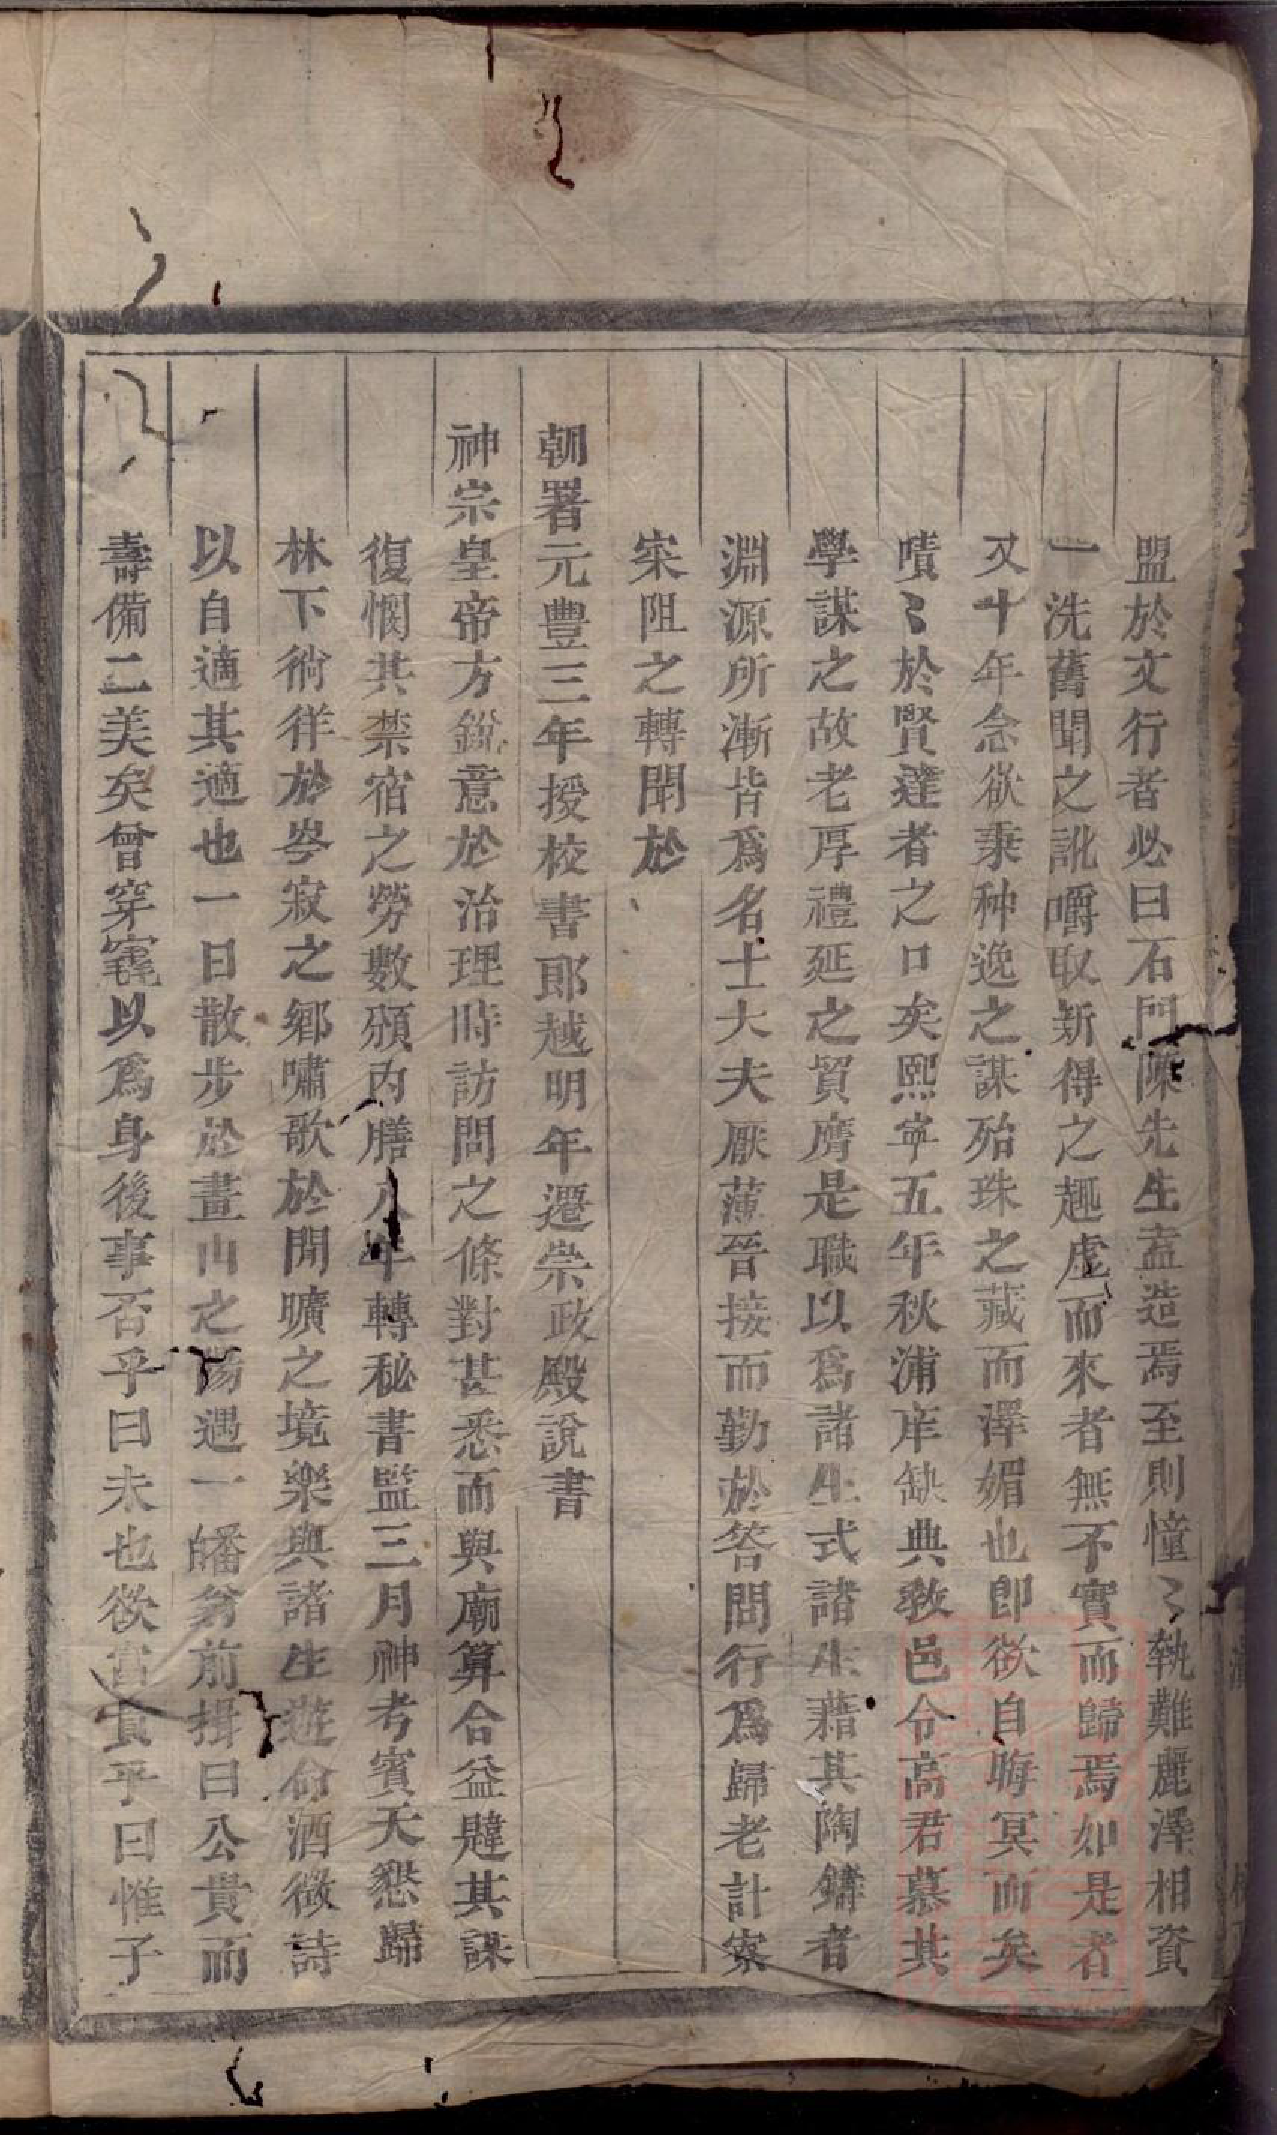 盟於文行者必曰石門陳先生盍造焉至則憧〻執難麗澤相資
一洗舊聞之訛嚼取新得之趣虛而來者無不實而歸焉如是者
又十年念欲秉种逸之謀殆珠之藏而澤媚也即欲自晦冥而矣
嘖〻於賢達者之口矣熙寧五年秋浦庠缺典教邑令高君慕其
學謀之故老厚禮延之貿膺是職以爲諸生式諸生藉其陶鑄者
淵源所漸皆爲名士大夫厭薄晉接而勤於答問行爲歸老計寮
寀阻之轉聞於
朝署元豐三年授校書郎越明年遷崇政殿說書
神宗皇帝方銳意於治理時訪問之條對甚悉而與廟算合益韙其謀
復憫其禁宿之勞數頒內膳八年轉秘書監三月神考賓天懇歸
林下徜徉於岑寂之鄉嘯歌於閒曠之境樂與諸生遊命酒徵詩
以自適其適也一日散步於畫山之陽遇一皤翁前揖曰公貴而
壽備二美矣曾穿窀以爲身後事否乎曰未也欲富貴乎曰惟子